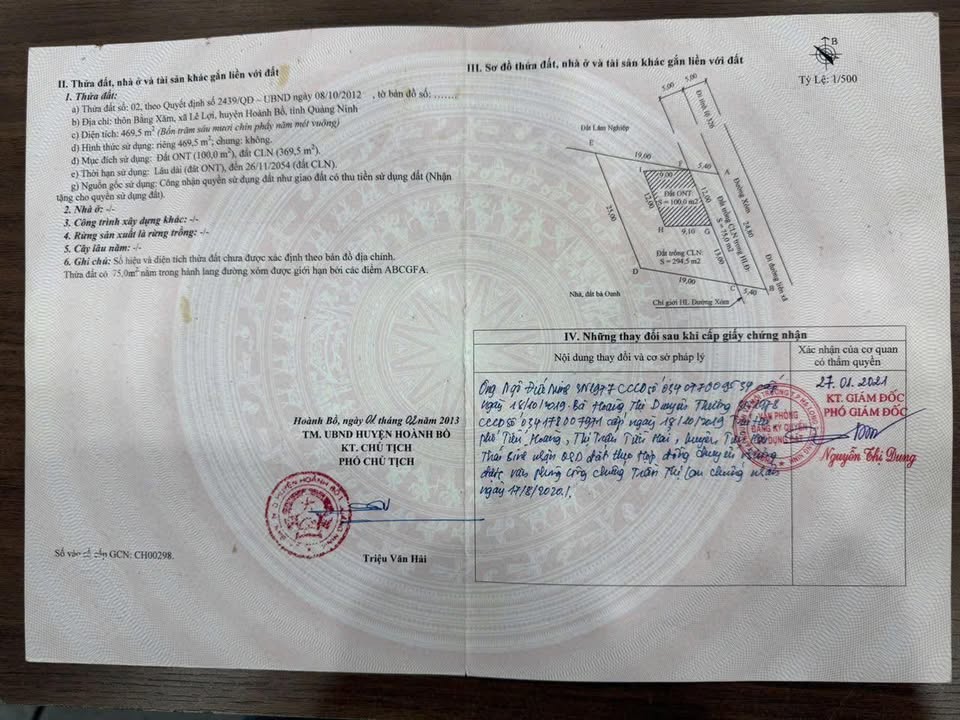 II. Thửa đất, nhà ở và tài sản khác gắn liền với đất
1. Thửa đất:
a) Thửa đất số: 02, theo Quyết định số 2439/QĐ – UBND ngày 08/10/2012 , tờ bản đồ số: .......
b) Địa chỉ: thôn Bằng Xăm, xã Lê Lợi, huyện Hoành Bồ, tỉnh Quảng Ninh
c) Diện tích: 469,5 m² (Bốn trăm sáu mươi chín phẩy năm mét vuông)
d) Hình thức sử dụng: riêng 469,5 m²; chung: không.
đ) Mục đích sử dụng: Đất ONT (100,0 m²), đất CLN (369,5 m²).
e) Thời hạn sử dụng: Lâu dài (đất ONT), đến 26/11/2054 (đất CLN).
g) Nguồn gốc sử dụng: Công nhận quyền sử dụng đất như giao đất có thu tiền sử dụng đất (Nhận
tặng cho quyền sử dụng đất).
2. Nhà ở: -/-
3. Công trình xây dựng khác: -/-
4. Rừng sản xuất là rừng trồng: -/-
5. Cây lâu năm: -/-
6. Ghi chú: Số hiệu và diện tích thửa đất chưa được xác định theo bản đồ địa chính.
Thửa đất có 75,0m² nằm trong hành lang đường xóm được giới hạn bởi các điểm ABCGFA.
Hoành Bồ, ngày 01 tháng 02 năm 2013
TM. UBND HUYỆN HOÀNH BỒ
KT. CHỦ TỊCH
PHÓ CHỦ TỊCH
Triệu Văn Hải
Số vào GCN: CH00298.
III. Sơ đồ thửa đất, nhà ở và tài sản khác gắn liền với đất
B
Tỷ Lệ: 1/500
5,00
5,00
Đi tỉnh lộ 326
Đất Lâm Nghiệp
E
19,00
F
5,40
A
I
9,00
Đất ONT
S = 100,0 m2
12,00
12,00
H
9,10
G
Đường Xóm
24,80
Đất trồng CLN trong HLĐ:
S = 75,0 m2
25,00
13,00
Đất trồng CLN:
S = 294,5 m2
D
19,00
C
5,40
B
Đi đường liên xã
Nhà, đất bà Oanh
Chỉ giới HL Đường Xóm
IV. Những thay đổi sau khi cấp giấy chứng nhận
Nội dung thay đổi và cơ sở pháp lý
Xác nhận của cơ quan
có thẩm quyền
Ông Ngô Đức 1977 CCCD số cấp
ngày 18/10/2019. Bà Hoàng Thị Duyên Thương
CCCD số cấp ngày 18/10/2019
phố Tiểu Hoàng, Thị Trấn Tiền Hải, huyện Tiền Hải
Thái Bình nhận QSD đất theo Hợp đồng chuyển nhượng
được văn phòng công chứng Trần Thị Lan chứng nhận
ngày 17/8/2020./.
27.01.2021
KT. GIÁM ĐỐC
PHÓ GIÁM ĐỐC
VĂN PHÒNG
ĐĂNG KÝ QUYỀN
SỬ DỤNG ĐẤT
Nguyễn Thị Dung